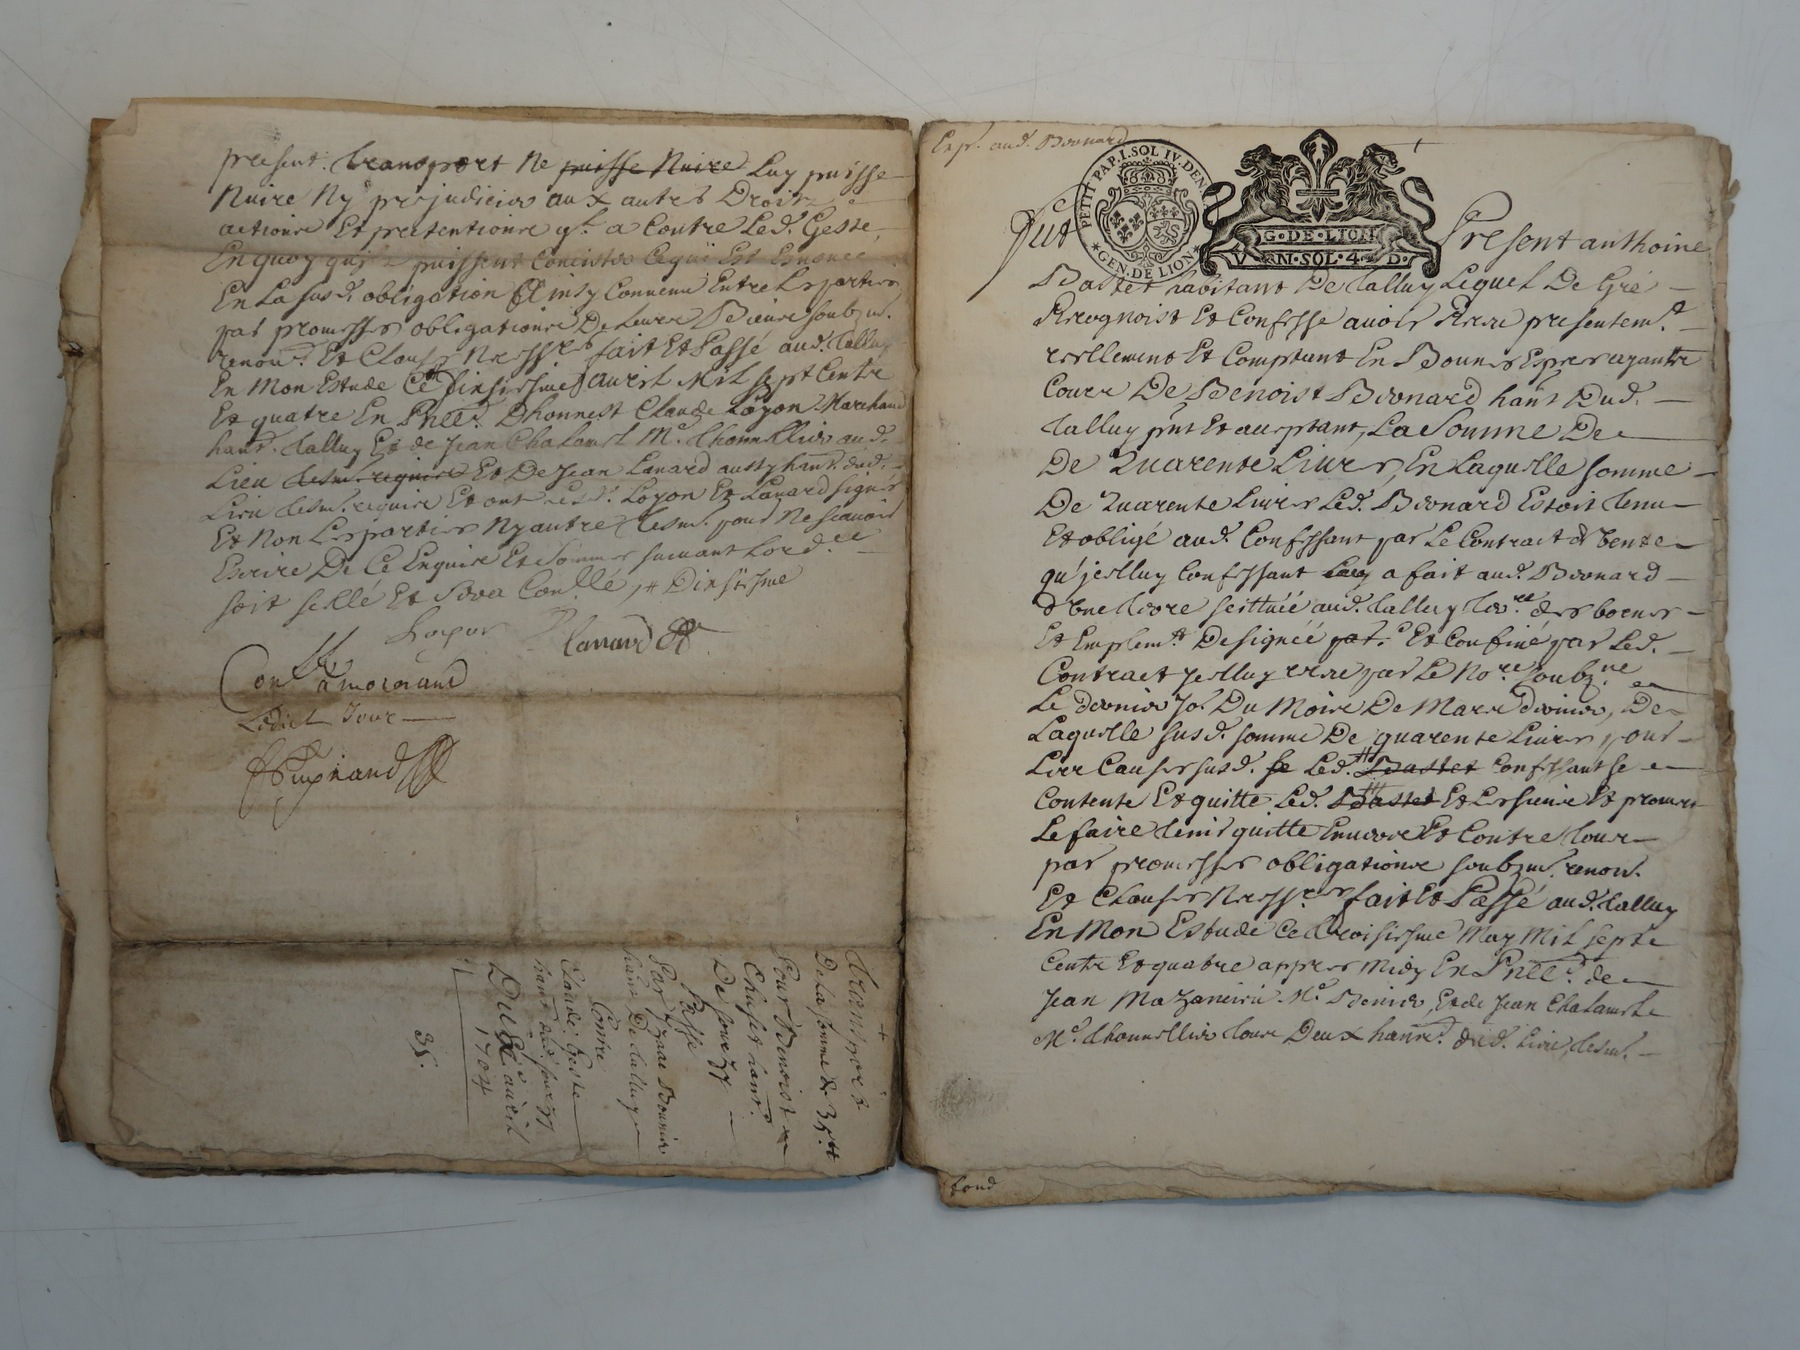 present transport ne puisse nuire Luy puisse
nuire ny prejudicier aux autres Droits
actions Et pretentions q.l a Contre Led. Geste,
En quoy qu'ils puissent Concister Ce qui Est Enoncé
En La susd. obligation Ainsy Convenu Entre Les parties
par promesses obligations De Leurs Biens soubzm.
renon.s Et Clauses Necess.res fait Et Passé aud. Talluy
En Mon Estude Ce Avril Mil sept Cents
Et quatre En Pnce. D'honnest Claude Loyon Marchand
hant. Talluy Et de Jean Chalamel M.e thonnellier aud.
Lieu tesm. requis Et De Jean Lanard aussy hant. dud.
Lieu tesm. requis Et ont Lesd. Loyon Et Lanard signés
Et Non Les parties Ny autre tesm. pour Ne scavoir
Escrire De Ce Enquis Et Sommes suivant Lord.ce
soit scellé Et Sera Con.llé
Loyon Lanard
Con.llé a mornand
Ledict Jour
Transport
De La somme de 35.tt
Pour Benoist
Chuset hant.
De soucy
Passé
Par Isaac Bonier
hant. De Talluy
Contre
Claude Geste
hant. dud. soucy
Du avril
1704
35.
Exp. aud. Bronard
PETIT PAP. I. SOL IV. DEN.
GEN. DE LION
G. DE LION
VN. SOL. 4. D.
Fut Present anthoine
Bastet habitant De Talluy Lequel De Gré
Recognoist Et Confesse avoir Receu presentem.t
reellement Et Comptant En Bonnes Especes ayants
Cours De Benoist Bronard hant Dud.
Talluy pnt Et acceptant, La Somme De
De Quarente Livres, En Laquelle somme
De Quarente Livres Led. Bronard Estoit tenu
Et obligé aud. Confessant par Le Contract de Vente
qu'jcelluy Confessant Luy a fait aud. Bronard
d'une Terre scittuée aud. Talluy des bornes
Et Emplem.ts Designée par. Et Confiné par Led.
Contract jcelluy receu par Le No.re soubz.né
Le dernier Jo.r Du Mois De Mars dernier, De
Laquelle susd. somme De quarente Livres pour
Les Causes susd. se Led. Bastet Confessant se
Contente Et quitte Led. Bastet Et Les siens Et promet
Le faire tenir quitte Envers Et Contre tous
par promesses obligations soubzm. renon.
Et Clauses Necess.res fait Et Passé aud. Talluy
En Mon Estude Ce Troisiesme May Mil sept
Cents Et quatre appres Midy En Pnce. de
Jean M.e Et de Jean Chalamel
M.e thonnellier tous Deux hant. dud. Lieu, tesm.